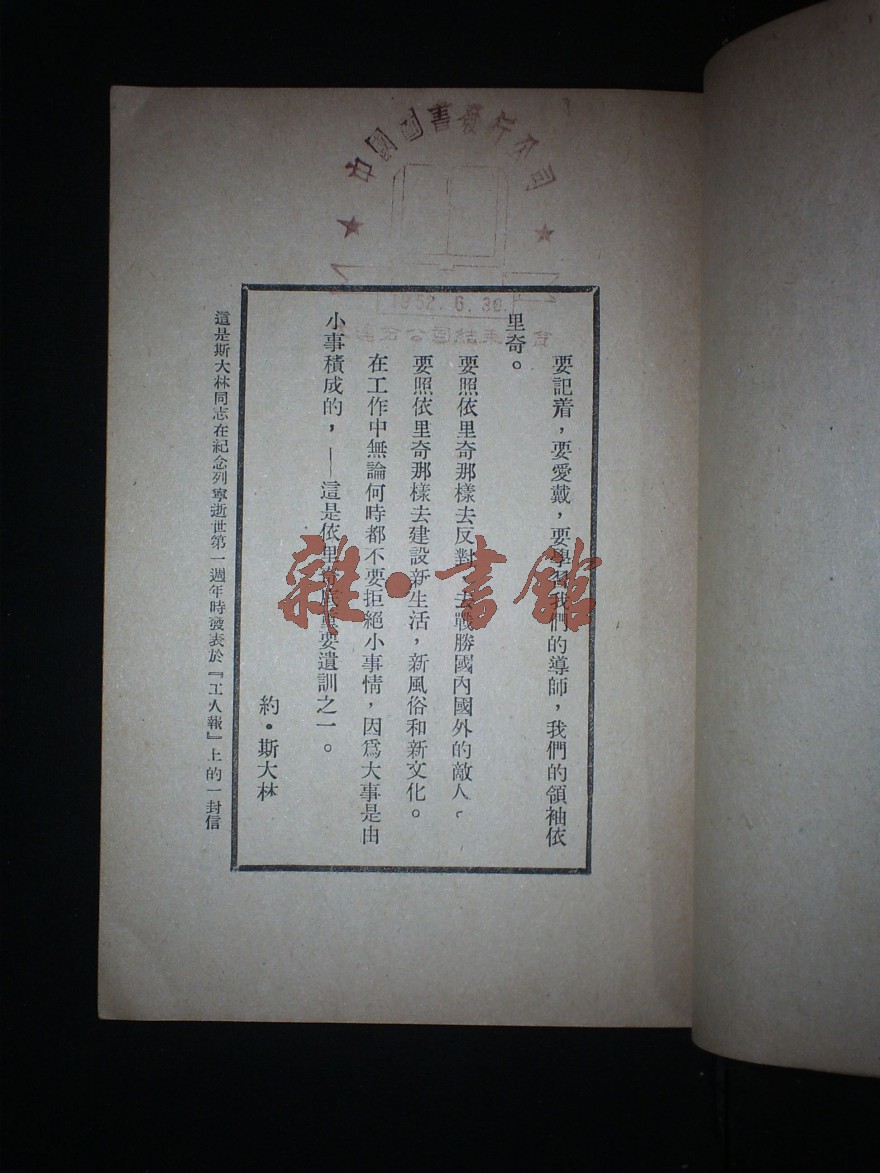 中國圖書發行公司
1952.6.30.
要記着，要愛戴，要學習我們的導師，我們的領袖依
里奇。
要照依里奇那樣去反對，去戰勝國內國外的敵人。
要照依里奇那樣去建設新生活，新風俗和新文化。
在工作中無論何時都不要拒絕小事情，因爲大事是由
小事積成的，——這是依里奇底重要遺訓之一。
約·斯大林
這是斯大林同志在紀念列寧逝世第一週年時發表於『工人報』上的一封信
雜·書館